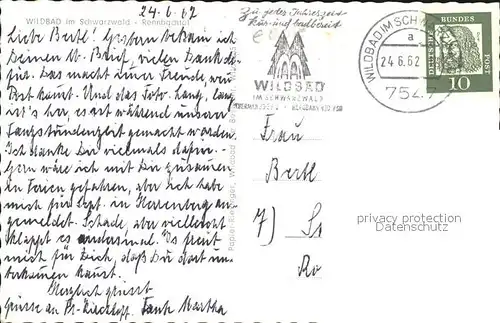 WILDBAD im Schwarzwald - Rennbachtal
24.6.62
Liebe Bertl! Gestern bekam ich
Deinen lb. Brief, vielen Dank da-
für. Das macht einer Freude, wenn
Post kommt. Und das Foto. Lang, lang
ist's her, es ist während unserer
gemacht worden.
Ich danke Dir vielmals dafür.
Gern wäre ich mit Dir zusammen
in Ferien gefahren, aber ich habe
mich für Sept. in Herrenberg an-
gemeldet. Schade, aber vielleicht
klappt es andersmal. Es freut
mich für Dich, daß Du dort un-
terkommen kannst.
Herzlich grüsst
Grüsse an Tante Martha
Zu jeder Jahreszeit
kur- und badbereit
WILDBAD
IM SCHWARZWALD
WILDBAD IM SCHW
a
24.6.62
7547
DEUTSCHE BUNDES POST
10
Frau
Bertl
7) S
Ro
privacy protection
Datenschutz